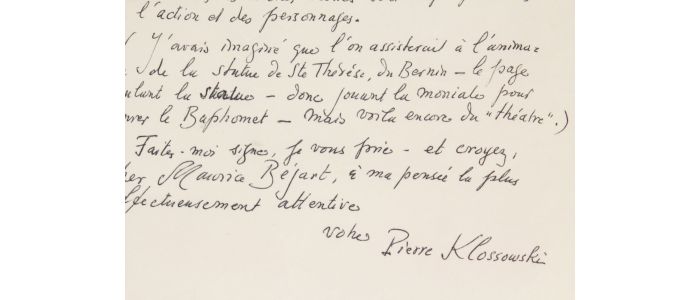 l'action et des personnages.
( J'avais imaginé que l'on assisterait à l'anima=
de la statue de Ste Thérèse, du Bernin – le page
ulant la statue – donc jouant la moniale pour
uver le Baphomet – mais voila encore du "théatre".)
Faites-moi signe, je vous prie - et croyez,
her Maurice Béjart, à ma pensée la plus
ffectueusement attentive
votre Pierre Klossowski